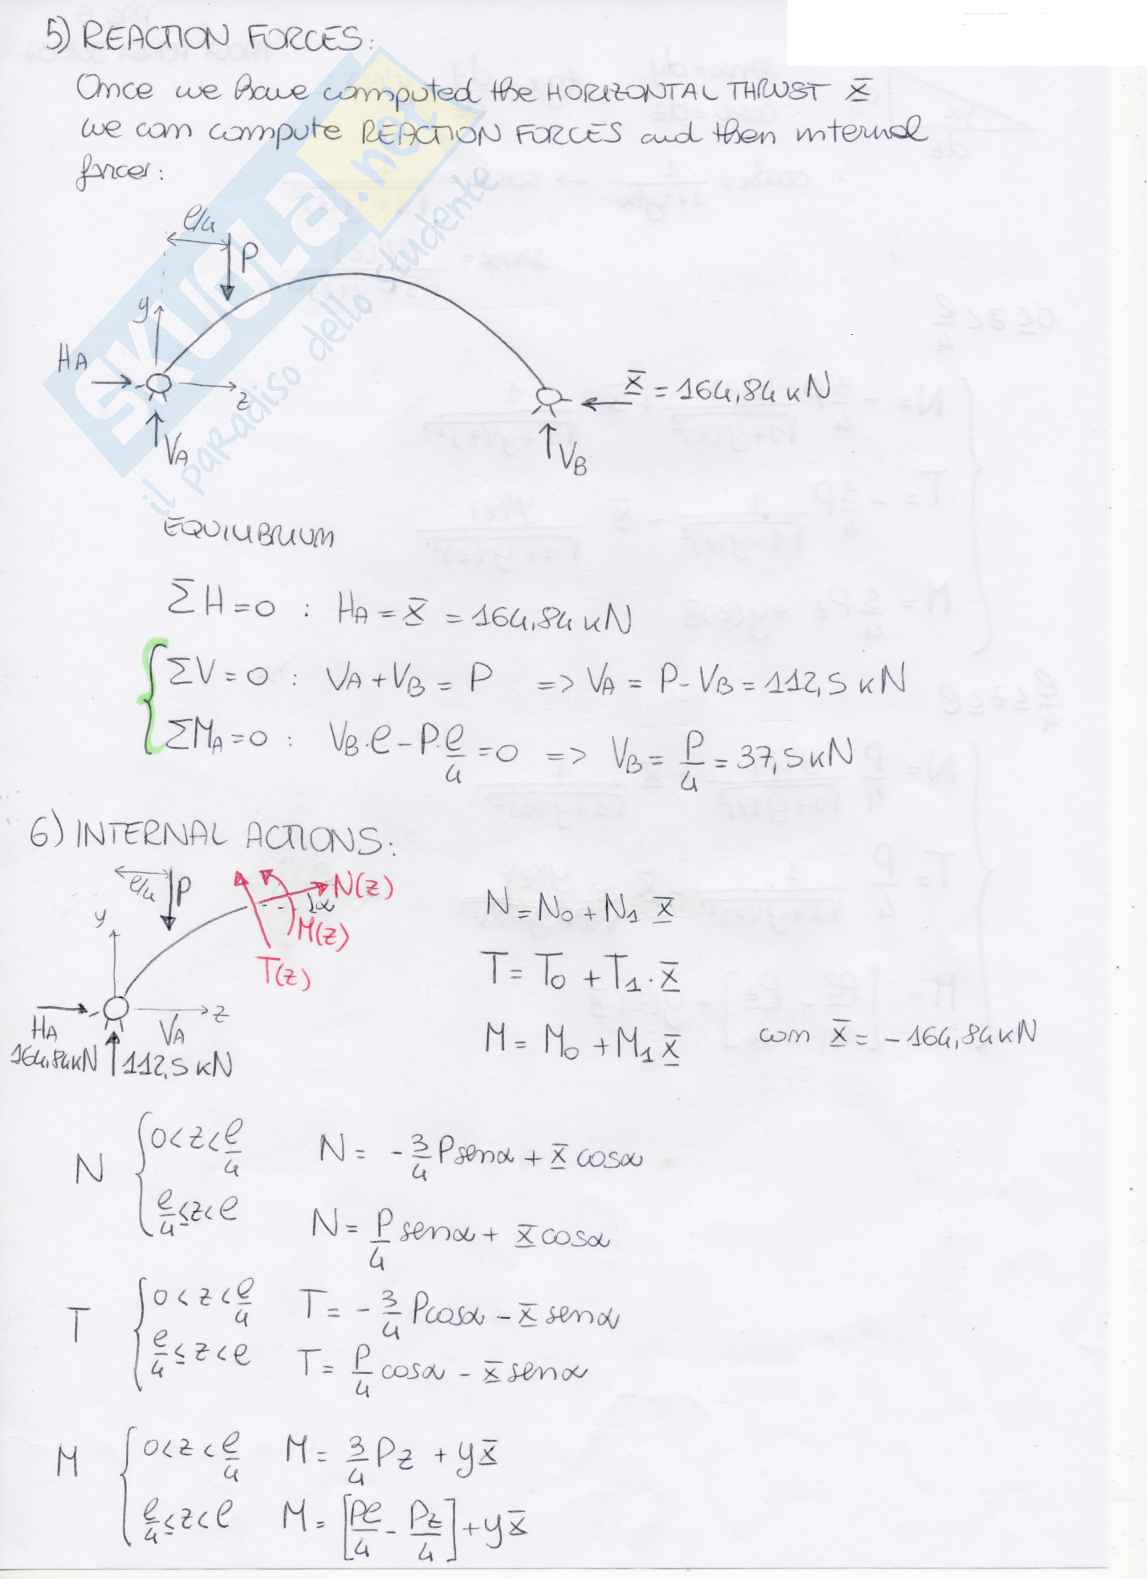 5) REACTION FORCES:
Once we have computed the HORIZONTAL THRUST X̄
we can compute REACTION FORCES and then internal
forces:
l/4
P
y
HA
z
VA
X̄ = 164,84 kN
VB
EQUILIBRIUM
ΣH = 0 : HA = X̄ = 164,84 kN
ΣV = 0 : VA + VB = P => VA = P - VB = 112,5 kN
ΣMA = 0 : VB·l - P·l/4 = 0 => VB = P/4 = 37,5 kN
6) INTERNAL ACTIONS:
l/4
P
N(z)
α
M(z)
T(z)
y
z
HA
164,84 kN
VA
112,5 kN
N = N0 + N1 X̄
T = T0 + T1·X̄
M = M0 + M1 X̄ con X̄ = -164,84 kN
N
0<z<l/4 N = -3/4 P senα + X̄ cosα
l/4≤z<l N = P/4 senα + X̄ cosα
T
0<z<l/4 T = -3/4 P cosα - X̄ senα
l/4≤z<l T = P/4 cosα - X̄ senα
M
0<z<l/4 M = 3/4 Pz + yX̄
l/4≤z<l M = [Pl/4 - Pz/4] + yX̄
SKUOLA.net
il paradiso dello studente